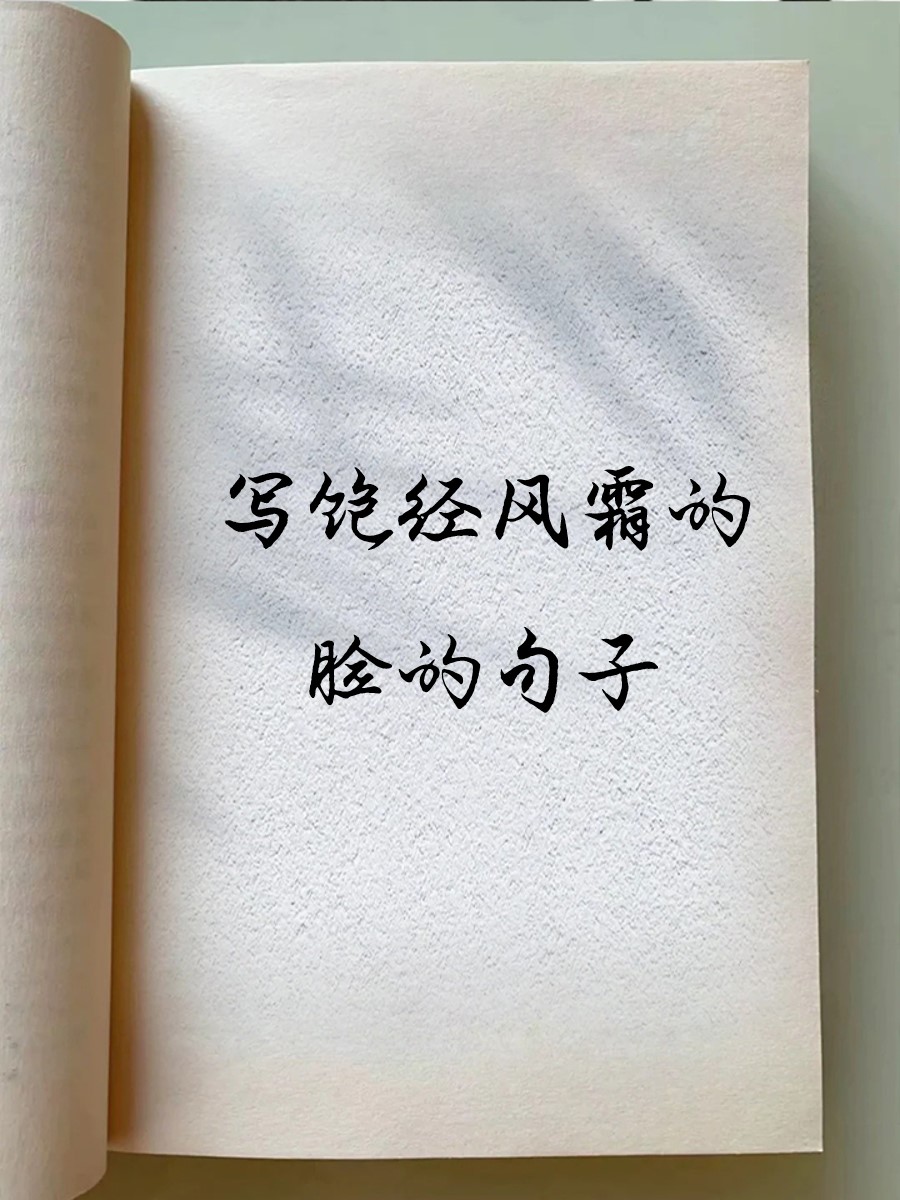 写饱经风霜的
脸的句子